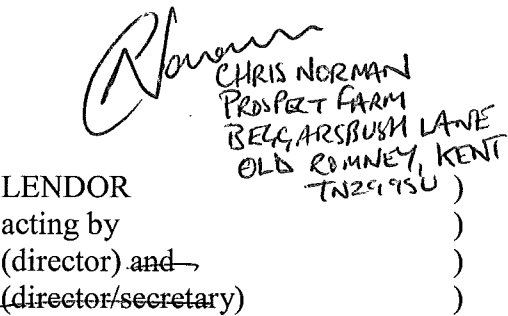 CHRIS NORMAN
PROSPECT FARM
BEGGARSBUSH LANE
OLD ROMNEY, KENT
TN29 9SU )
LENDOR
acting by )
(director) and )
(director/secretary) )